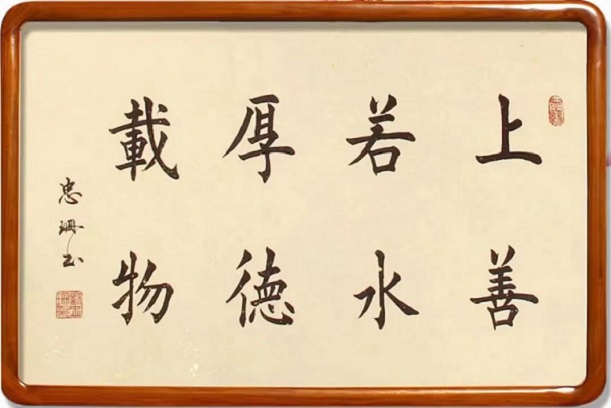 上善
若水
厚德
載物
忠興書